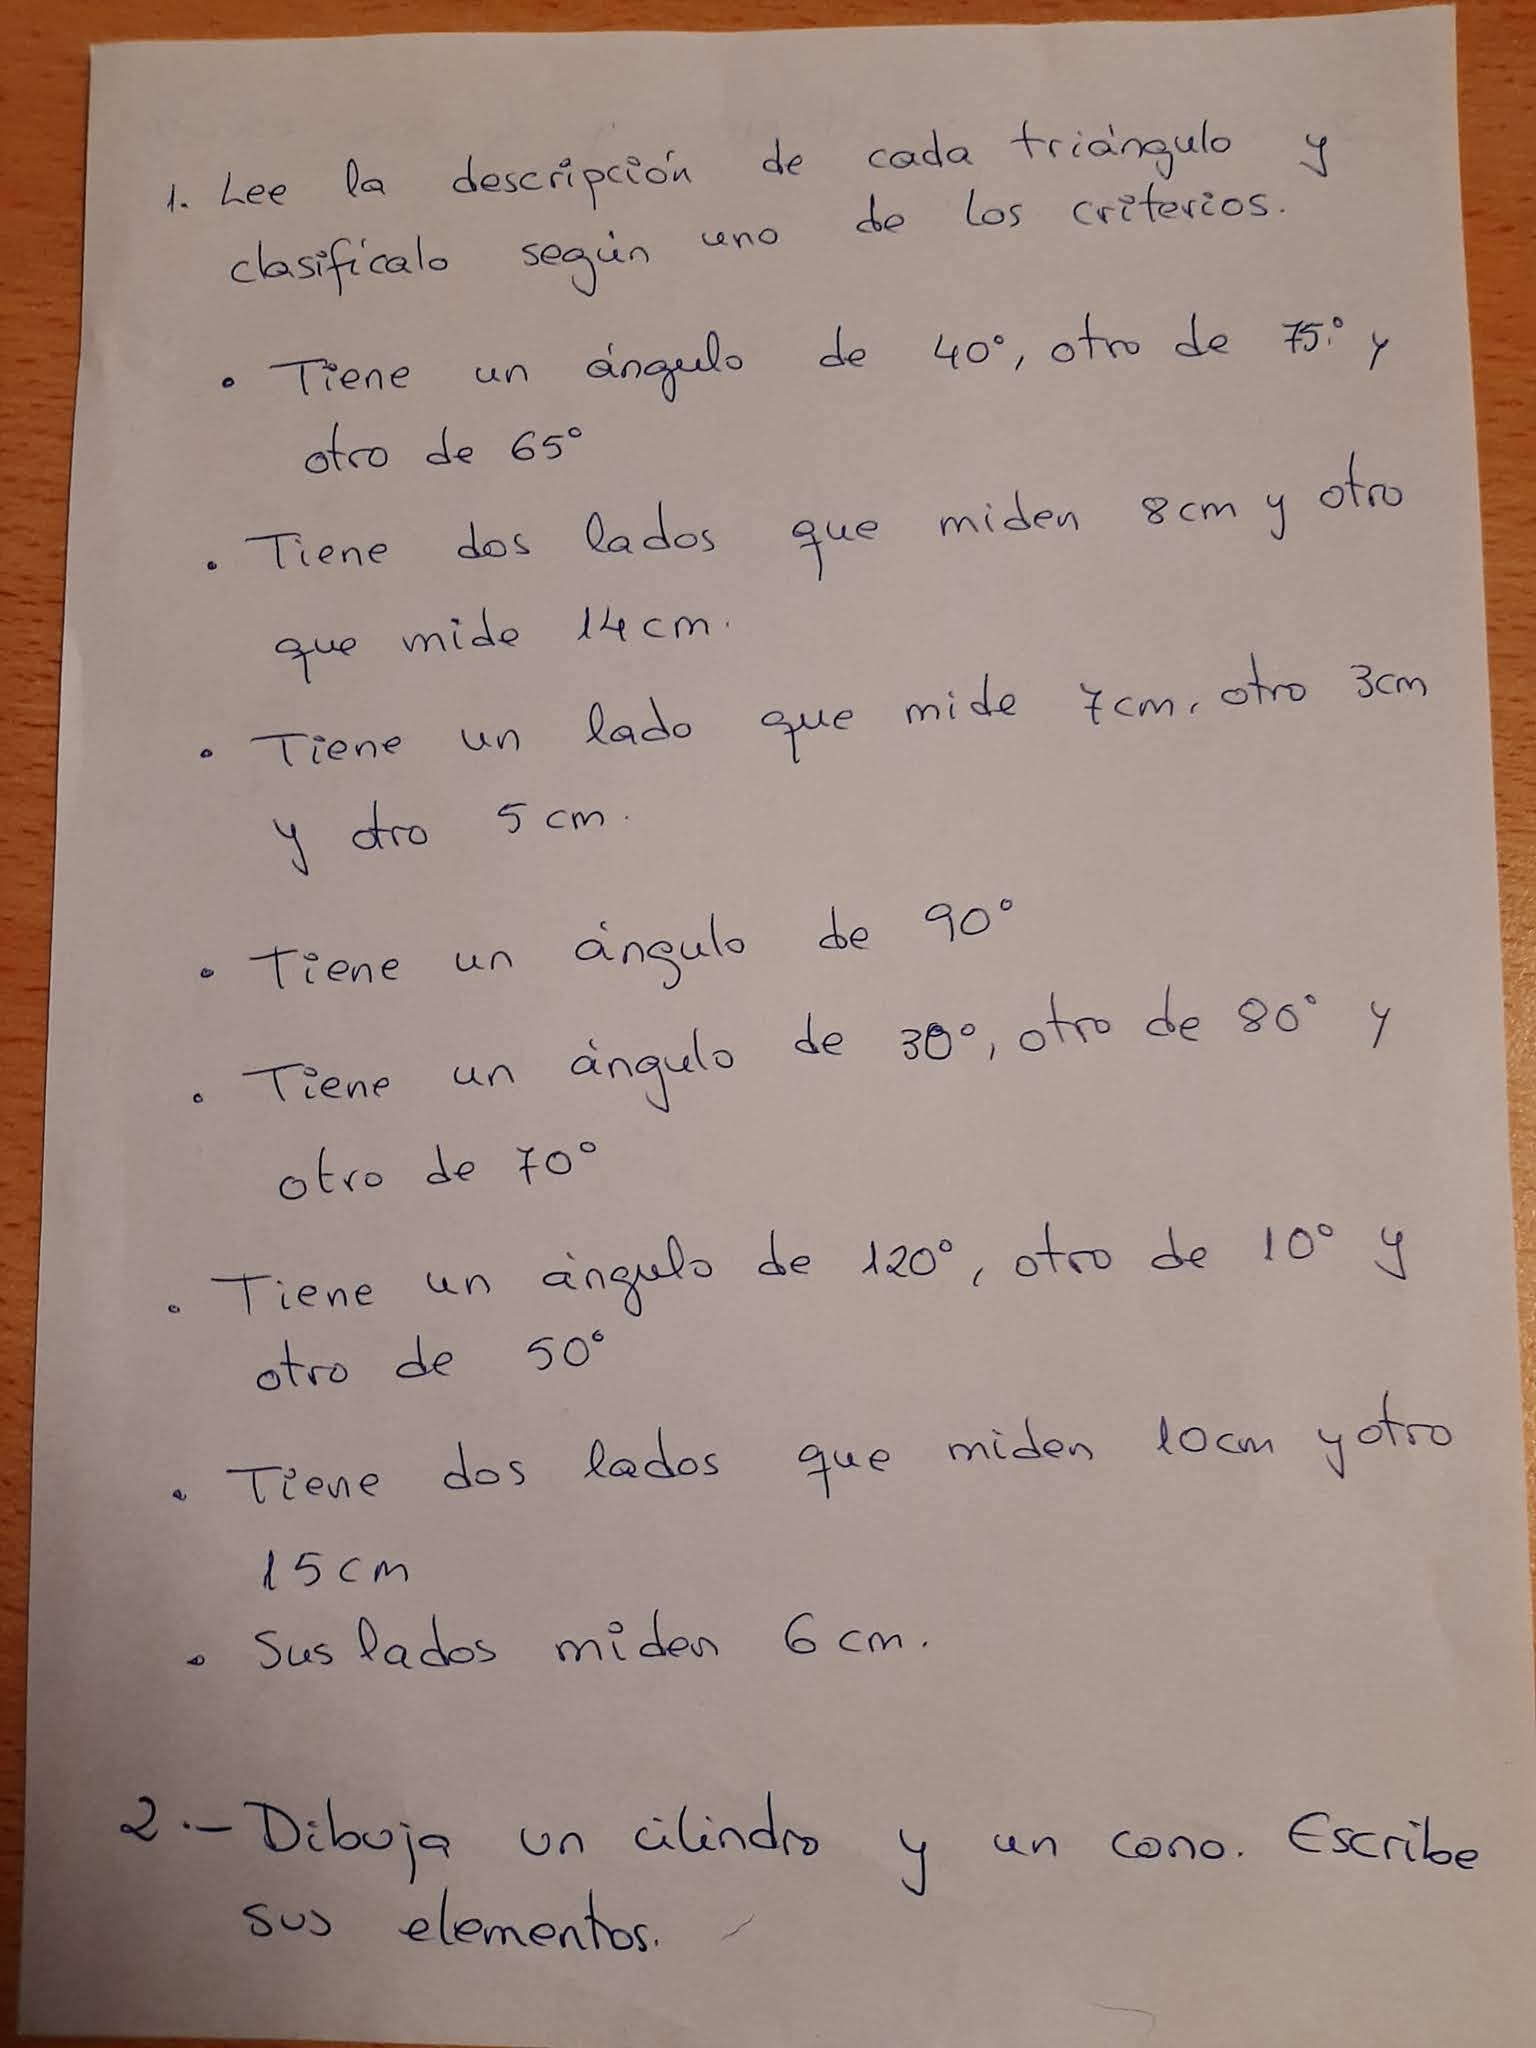 1. Lee la descripción de cada triángulo y
clasifícalo según uno de los criterios.
• Tiene un ángulo de 40°, otro de 75.° y
otro de 65°
• Tiene dos lados que miden 8cm y otro
que mide 14cm.
• Tiene un lado que mide 7cm, otro 3cm
y otro 5 cm.
• Tiene un ángulo de 90°
• Tiene un ángulo de 30°, otro de 80° y
otro de 70°
• Tiene un ángulo de 120°, otro de 10° y
otro de 50°
• Tiene dos lados que miden 10cm y otro
15cm
• Sus lados miden 6 cm.
2.- Dibuja un cilindro y un cono. Escribe
sus elementos.